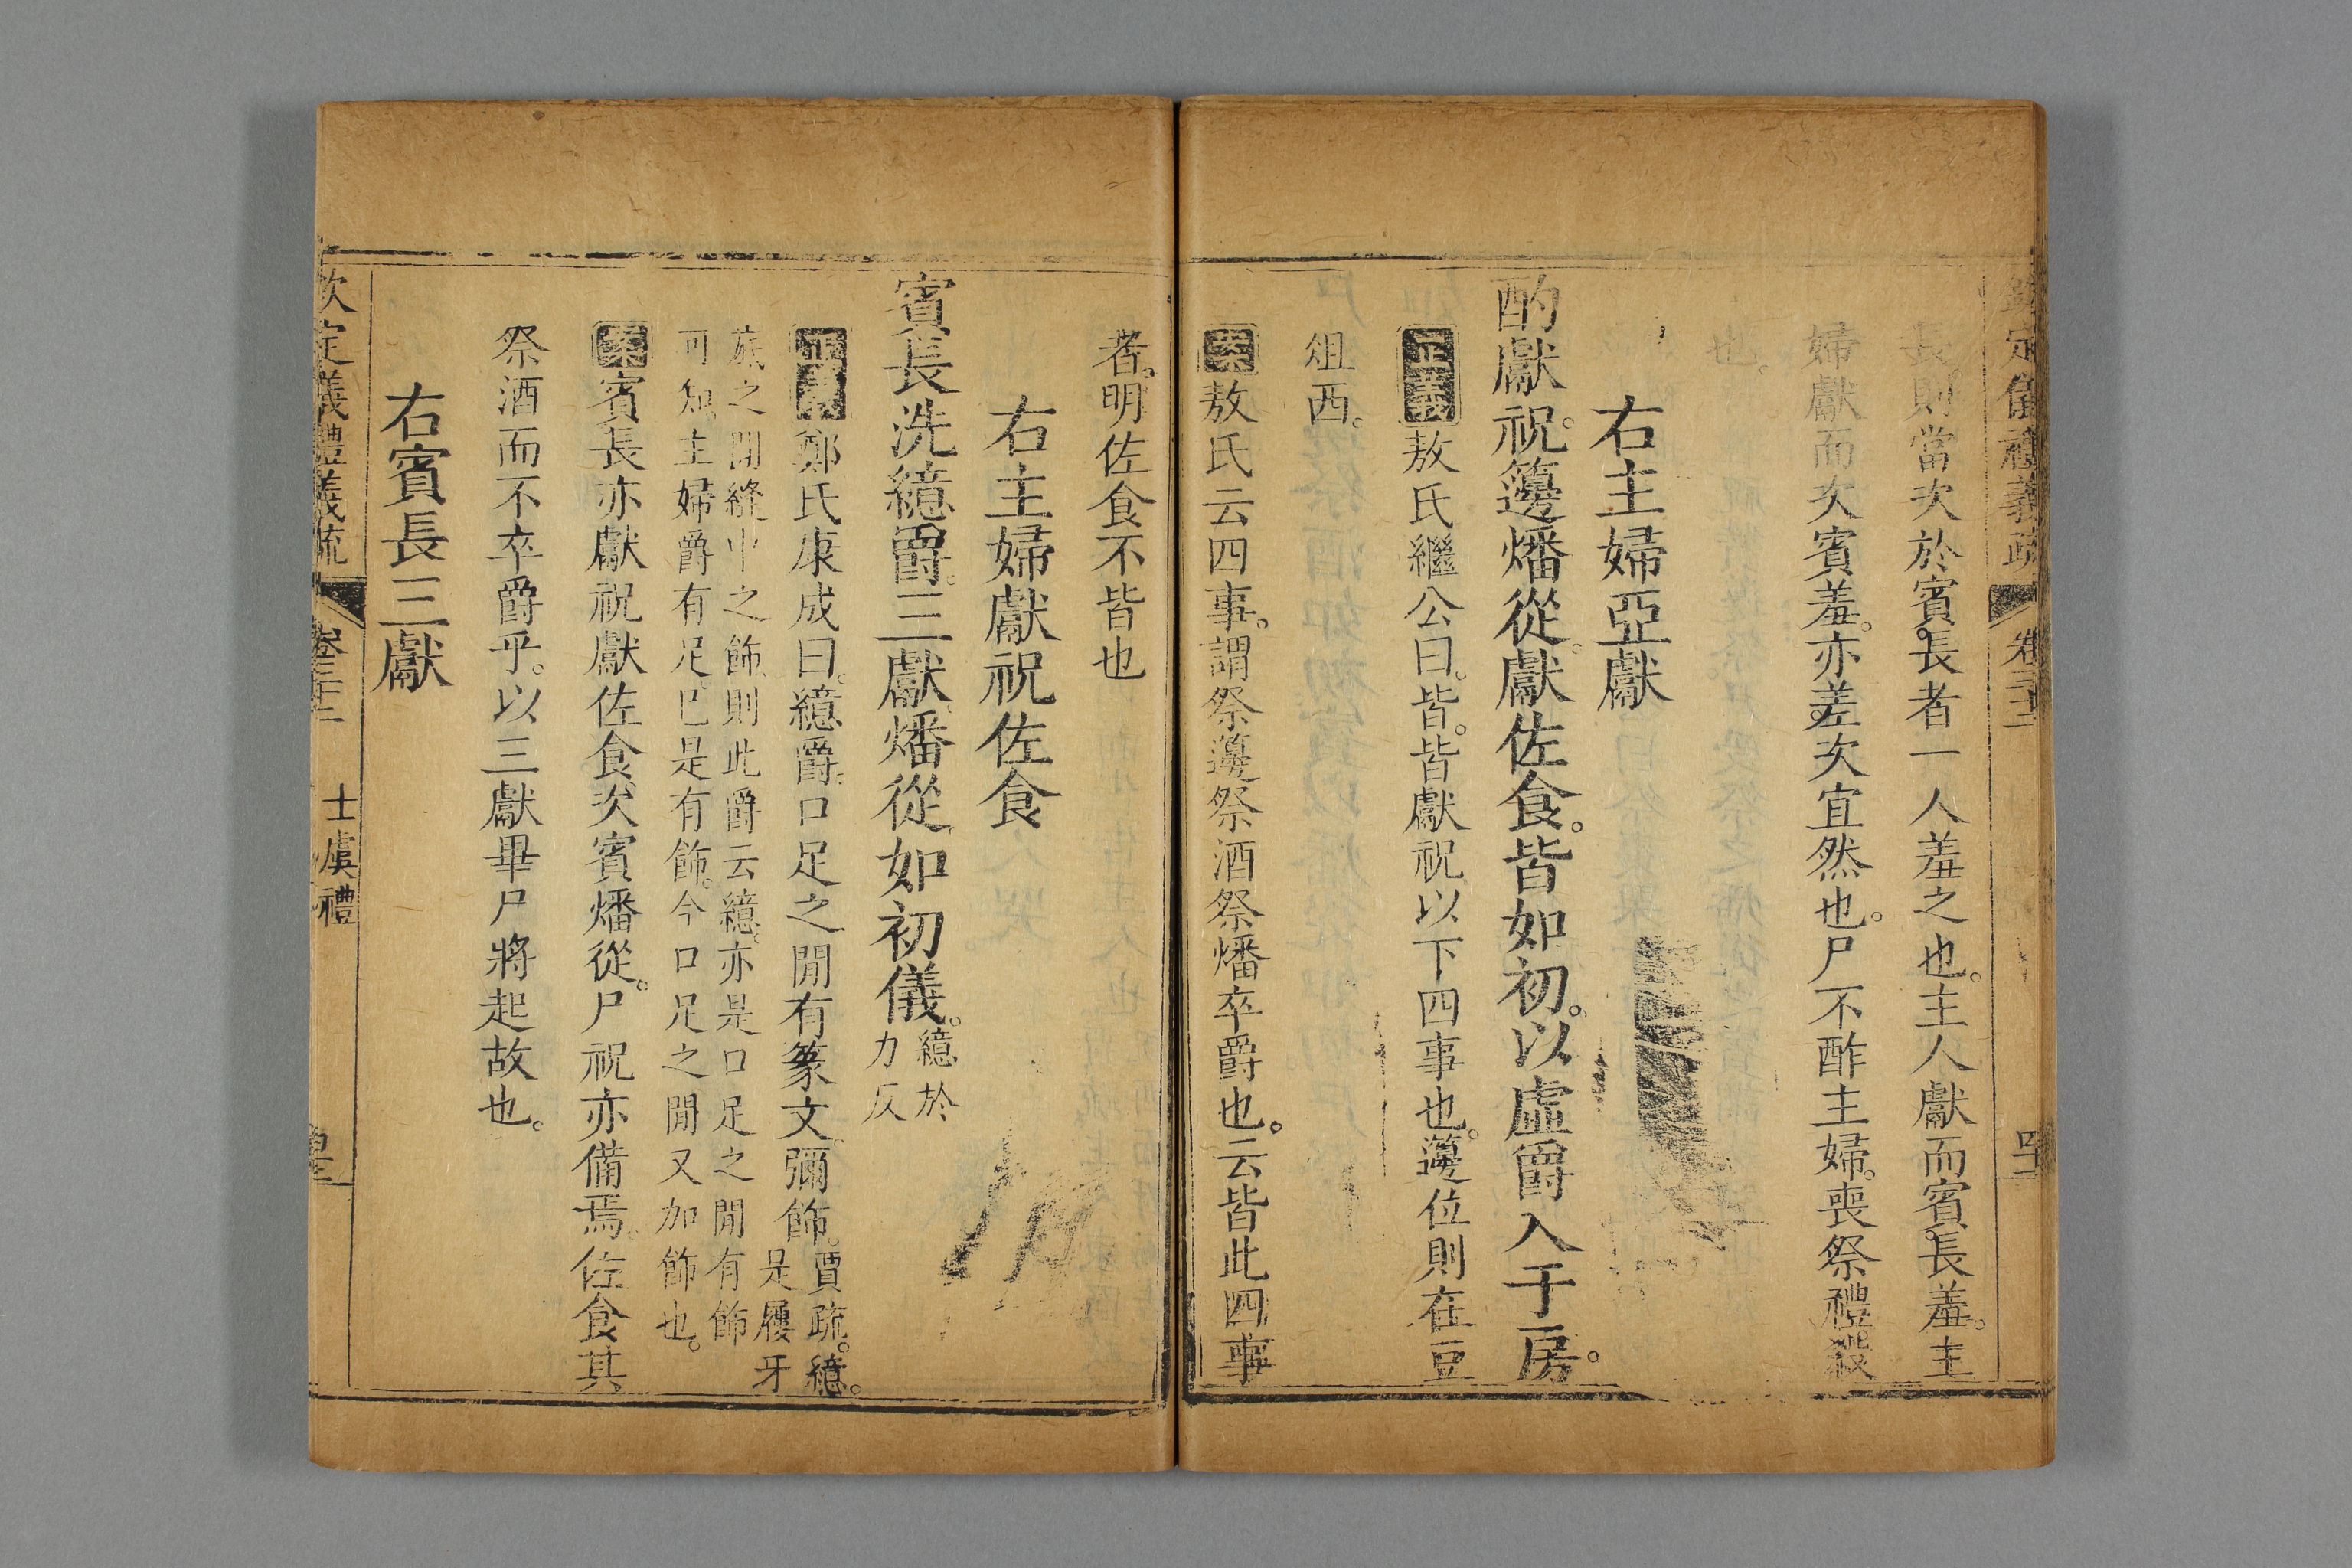 欽定儀禮義疏 卷三十三 四十二
長則當次於賓長者一人羞之也。主人獻而賓長羞。主
婦獻而次賓羞。亦差次宜然也。尸不酢主婦。喪祭禮殺
也。
右主婦亞獻
酌獻祝。籩燔從。獻佐食。皆如初。以虛爵入于房。
正義敖氏繼公曰。皆。皆獻祝以下四事也。籩位則在豆
俎西。
案敖氏云四事。謂祭籩祭酒祭燔卒爵也。云皆此四事
者。明佐食不皆也
右主婦獻祝佐食
賓長洗繶爵。三獻。燔從。如初儀。繶於
力反
正義鄭氏康成曰。繶爵。口足之閒有篆文彌飾。賈疏。繶。
是屨牙
底之閒縫中之飾。則此爵云繶。亦是口足之閒有飾
可知。主婦爵有足。已是有飾。今口足之閒又加飾也。
案賓長亦獻祝獻佐食。次賓燔從。尸祝亦備焉。佐食其
祭酒而不卒爵乎。以三獻畢尸將起故也。
右賓長三獻
欽定儀禮義疏 士虞禮